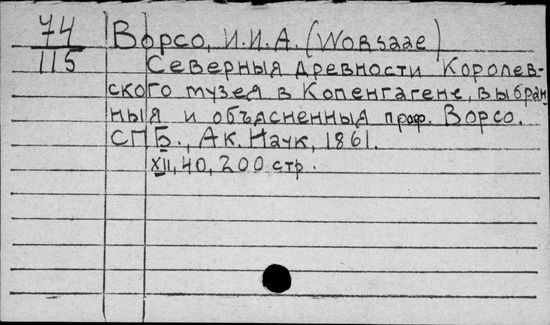 74
115
Ворсо, И.И.А. (Worsaae)
Северныя древности Королев-
ского музея в Копенгагене, выбран
ныя и объясненныя проф. Ворсо.
СПБ., Ак. Наук, 1861.
XII, 40, 200 стр.